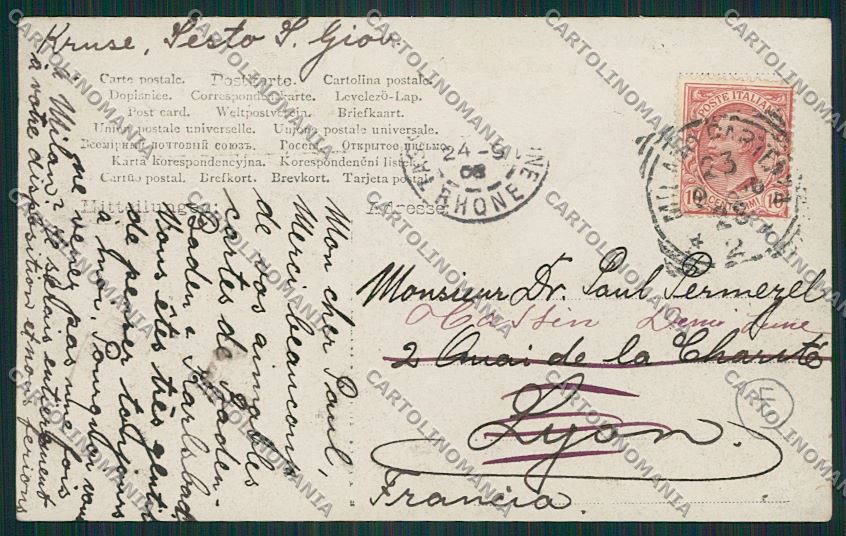 Kruse, Sesto S. Giov.
Carte postale. Postkarte. Cartolina postale.
Dopisnice. Correspondenzkarte. Levelező-Lap.
Post card. Weltpostverein. Briefkaart.
Union postale universelle. Unión postale universale.
Всемірный почтовый союзъ. Россія. Открытое письмо.
Karta korespondencyjna. Korespondenční lístek.
Cartão postal. Brefkort. Brevkort. Tarjeta postal.
Mitteilungen: Adresse:
Mon cher Paul,
Merci beaucoup
de vos aimables
cartes de Baden-
Baden & Karlsbad,
Vous êtes très gentil
de penser toujours
à moi. Pourquoi vous
ne venez pas une fois
à Milan? Je serais entièrement
à votre disposition et nous ferions
24-9
08
RHONE
POSTE ITALIANE
10 CENTESIMI 10
MILANO
23
2
Monsieur Dr. Paul Permezel
Demi Lune
2 Quai de la Charité
Lyon.
Francia.
CARTOLINOMANIA